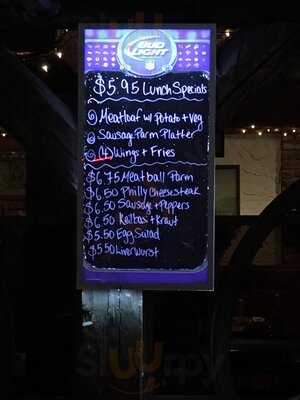 BUD
LIGHT
$5.95 Lunch Specials
Meatloaf w/ Potato + Veg
Sausage Parm Platter
(4) Wings + Fries
$6.75 Meatball Parm
$6.50 Philly Cheesesteak
$6.50 Sausage + Peppers
$6.50 Kolbas + Kraut
$5.50 Egg Salad
$5.50 Liverwurst
Slurrpy